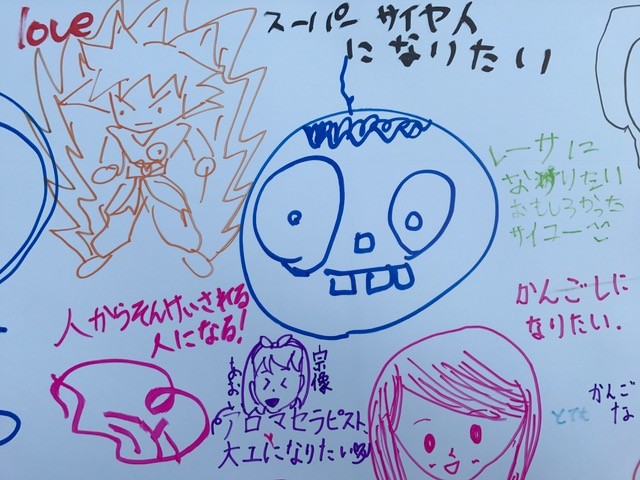 love
スーパー サイヤ人
になりたい
レーサに
なりたい
おもしろかった
サイコー
人からそんけいされる
人になる!
かんごしに
なりたい.
宗像
あお
アロマセラピスト
大工になりたい
かんご
な
とても